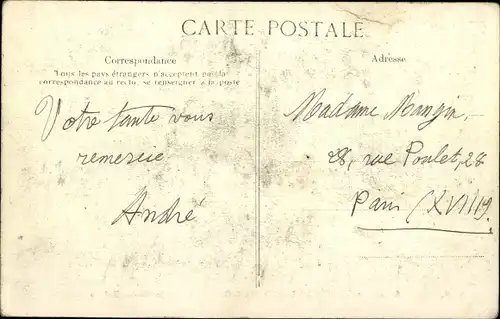 CARTE POSTALE
Correspondance
Tous les pays étrangers n'acceptent pas la
correspondance au recto, se renseigner à la poste
Votre tante vous
remercie
André
Adresse
Madame Mangin
28, rue Poulet, 28
Paris (XVIII)